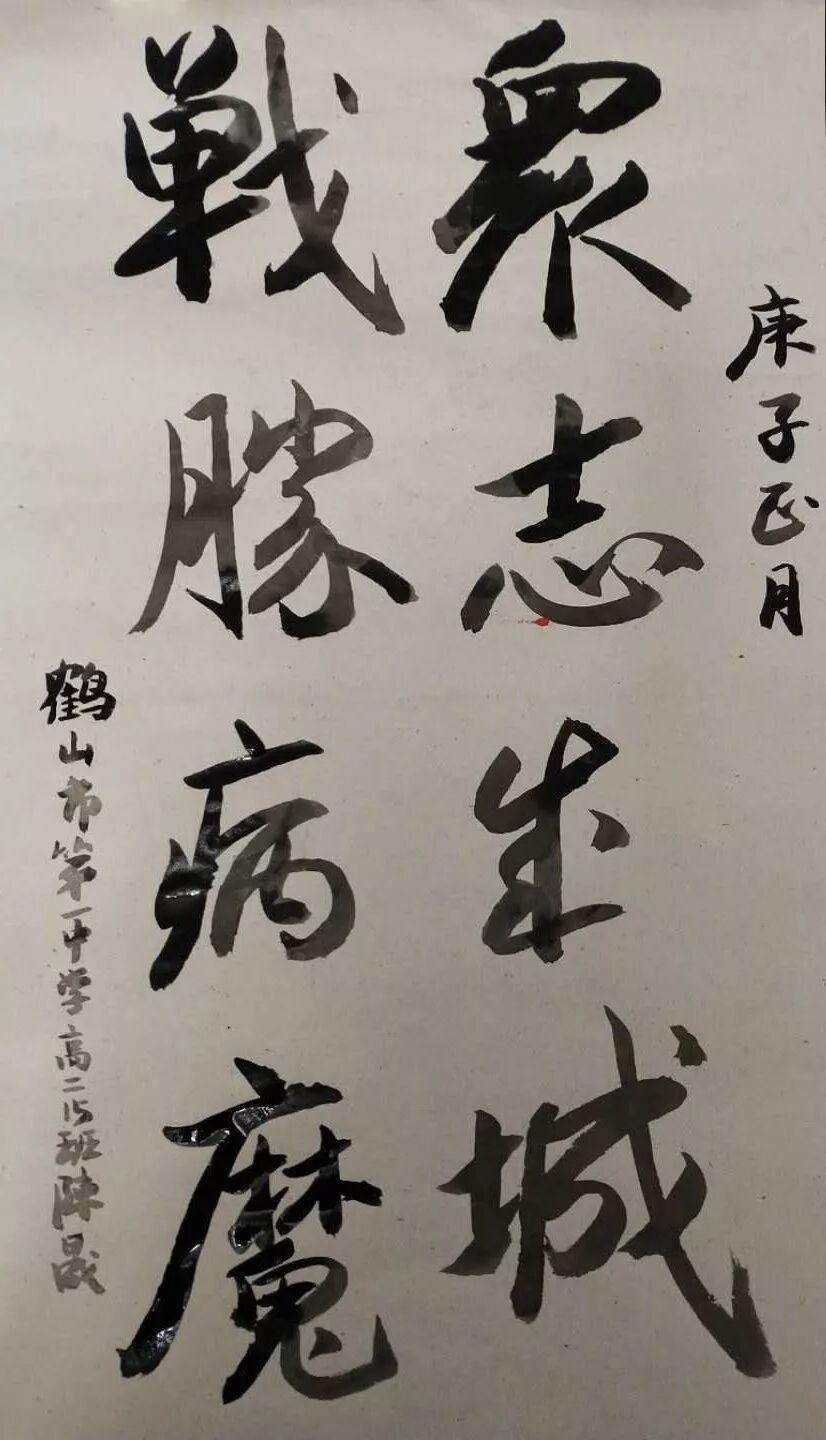 庚子正月
衆志成城
戰勝病魔
鶴山市第一中学高二15班陳晟